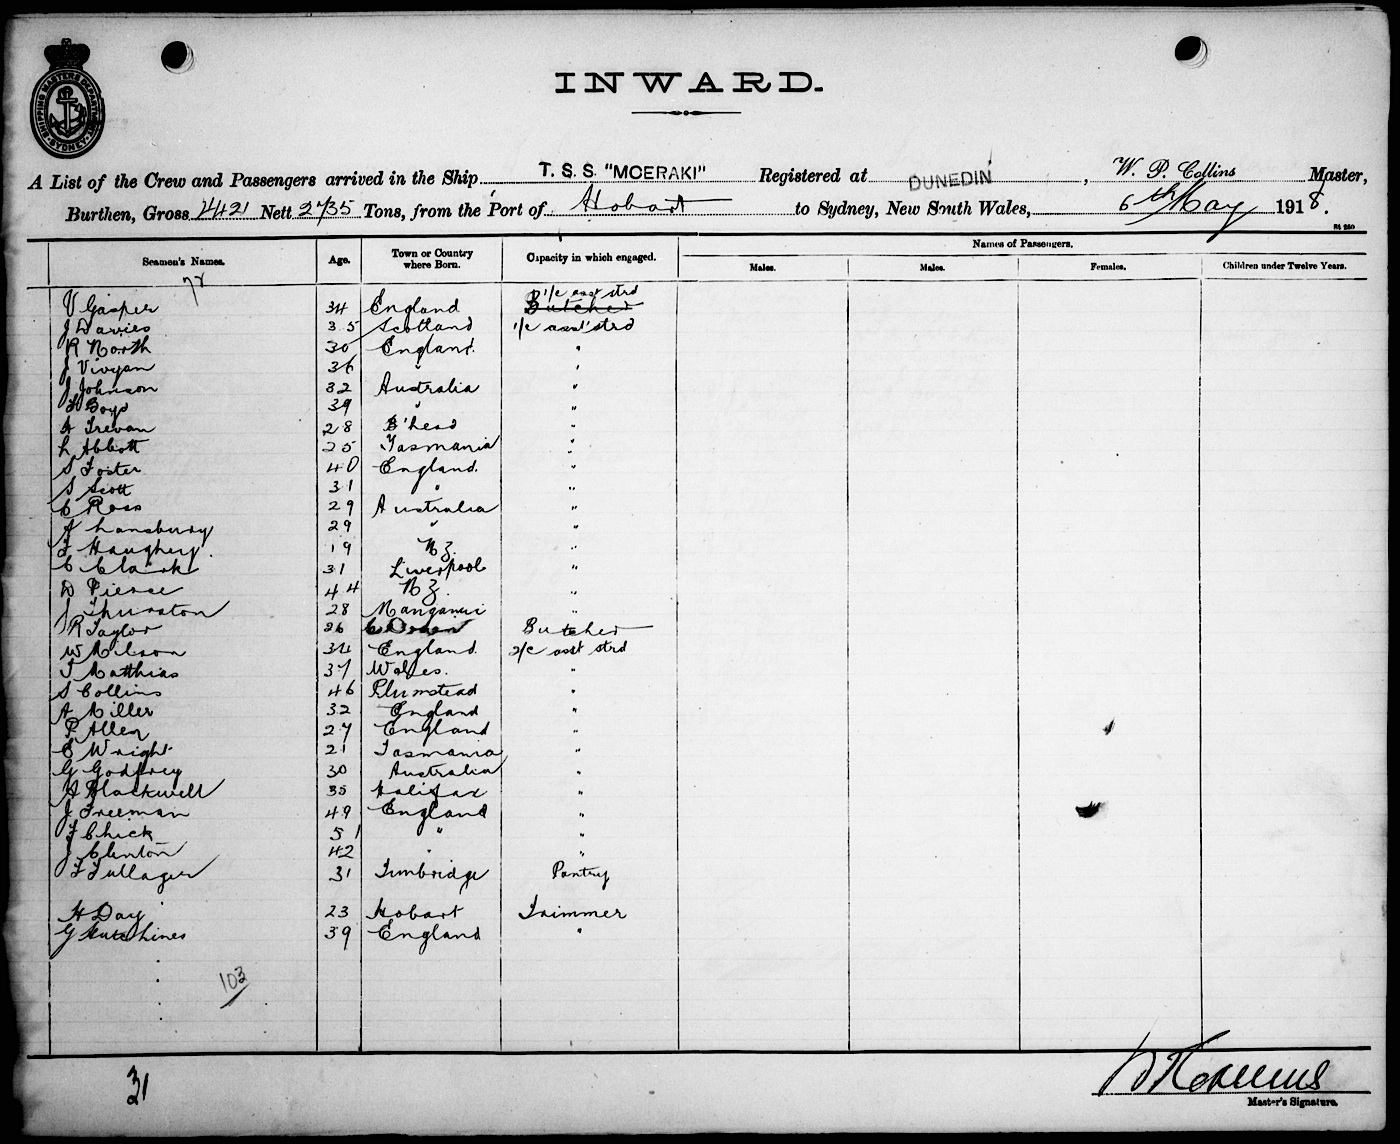 SHIPPING MASTERS DEPARTMENT · SYDNEY ·
INWARD.
A List of the Crew and Passengers arrived in the Ship T. S. S. "MOERAKI" Registered at DUNEDIN, W. P. Collins Master,
Burthen, Gross Nett 2735 Tons, from the Port of Hobart to Sydney, New South Wales, 6th May 1918.
Seamen's Names. Age. Town or Country where Born. Capacity in which engaged. Names of Passengers.
Males. Males. Females. Children under Twelve Years.
72
V Gasper 34 England Butcher 1/c asst strd
J Davies 35 Scotland 1/c asst strd
R North 30 England "
J Vivyan 36 " "
J Johnson 32 Australia "
Boyd 39 " "
A Trevan 28 B'head "
L Abbott 25 Tasmania "
S Foster 40 England "
S Scott 31 " "
C Ross 29 Australia "
A Lansbury 29 " "
T Haughey 19 NZ. "
C Clark 31 Liverpool "
D Pierse 44 NZ. "
J Thurston 28 Manganui "
R Taylor 26 Butcher
W Wilson 34 England 2/c asst strd
T Matthias 37 Wales. "
S Collins 46 Plumstead "
A Miller 32 England "
P Allen 27 England "
E Wright 21 Tasmania "
G Godfrey 30 Australia "
A Blackwell 35 Halifax "
J Freeman 49 England "
F Chick 51 " "
J Clenton 42 " "
F Fullager 31 Tunbridge Pantry
H Day 23 Hobart Trimmer
G Hutchines 39 England "
103
31
W P Collins
Master's Signature.